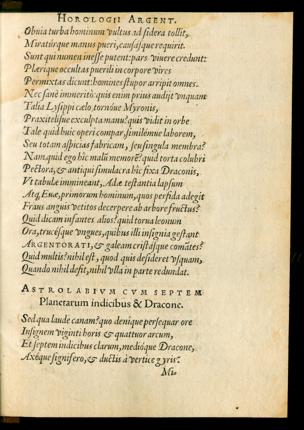 HOROLOGII ARGENT.
Obuia turba hominum vultus ad sidera tollit,
Miratúrque manus pueri, causásque requirit.
Sunt qui numen inesse putent: pars viuere credunt:
Plærique occultas puerili in corpore vires
Permixtas dicunt: homines stupor arripit omnes.
Nec sanè immeritò: quis enim prius audijt vnquam
Talia Lysippi cælo, tornóue Myronis,
Praxitelísue exculpta manu? quis vidit in orbe
Tale quid huic operi compar, similémue laborem,
Seu totam aspicias fabricam, seu singula membra?
Nam quid ego hîc malū memorē? quid torta colubri
Pectora, & antiqui simulacra hîc fixa Draconis,
Vt tabulæ immineant, Adæ testantia lapsum
Atq; Euæ, primorum hominum, quos perfida adegit
Fraus anguis vetitos decerpere ab arbore fructus?
Quid dicam infantes alios? quid torua leonum
Ora, trucésque vngues, quibus illi insignia gestant
ARGENTORATI, & galeam cristásque comātes?
Quid multis? nihil est, quod quis desideret vsquam,
Quando nihil defit, nihil vlla in parte redundat.
ASTROLABIVM CVM SEPTEM
Planetarum indicibus & Dracone.
Sed qua laude canam? quo denique persequar ore
Insignem viginti horis & quattuor arcum,
Et septem indicibus clarum, medióque Dracone,
Axéque signifero, & ductis à vertice gyris?
Mi-